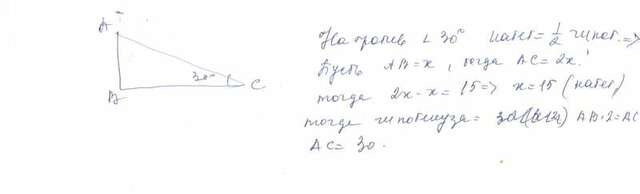 A
B
30°
C
Напротив ∠ 30° катет = 1/2 гипот. =>
Пусть AB = x, тогда AC = 2x.
тогда 2x - x = 15 => x = 15 (катет)
тогда гипотенуза = AB · 2 = AC
AC = 30.